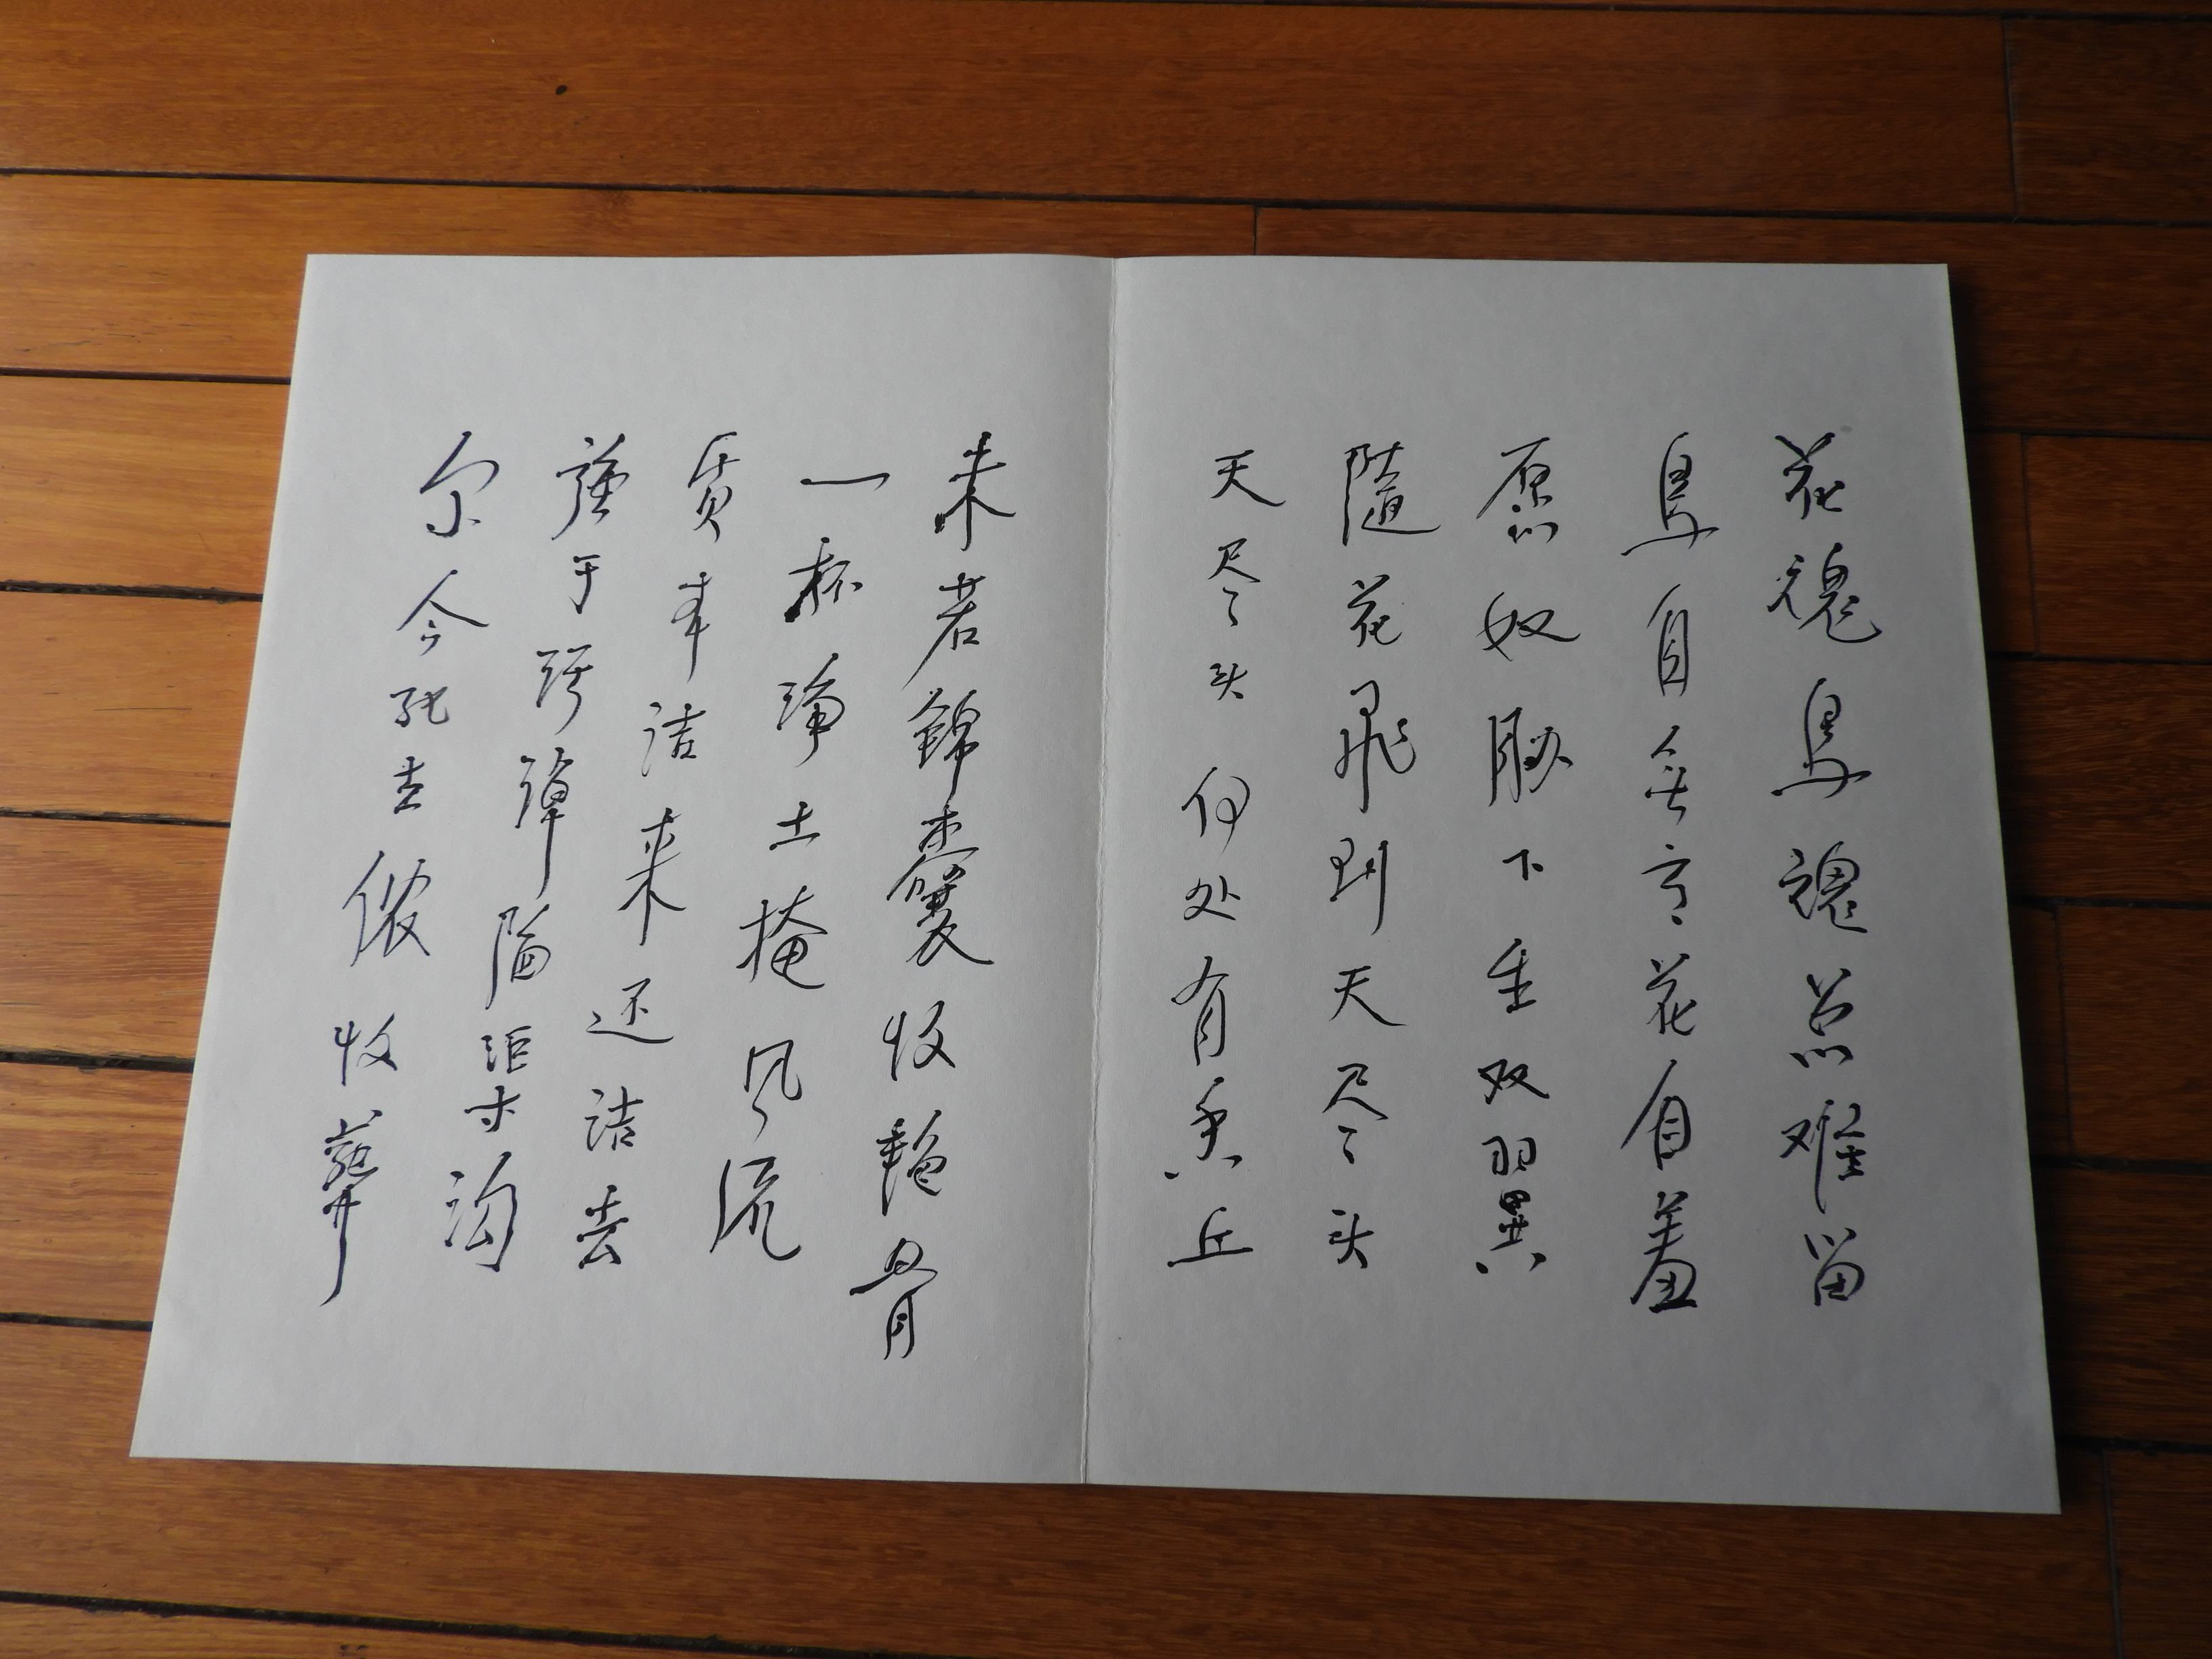 花魂鸟魂总难留
鸟自无言花自羞
愿奴胁下生双翼
随花飞到天尽头
天尽头何处有香丘
未若錦囊收艳骨
一杯净土掩风流
质本洁来还洁去
强于污淖陷渠沟
尔今死去侬收葬